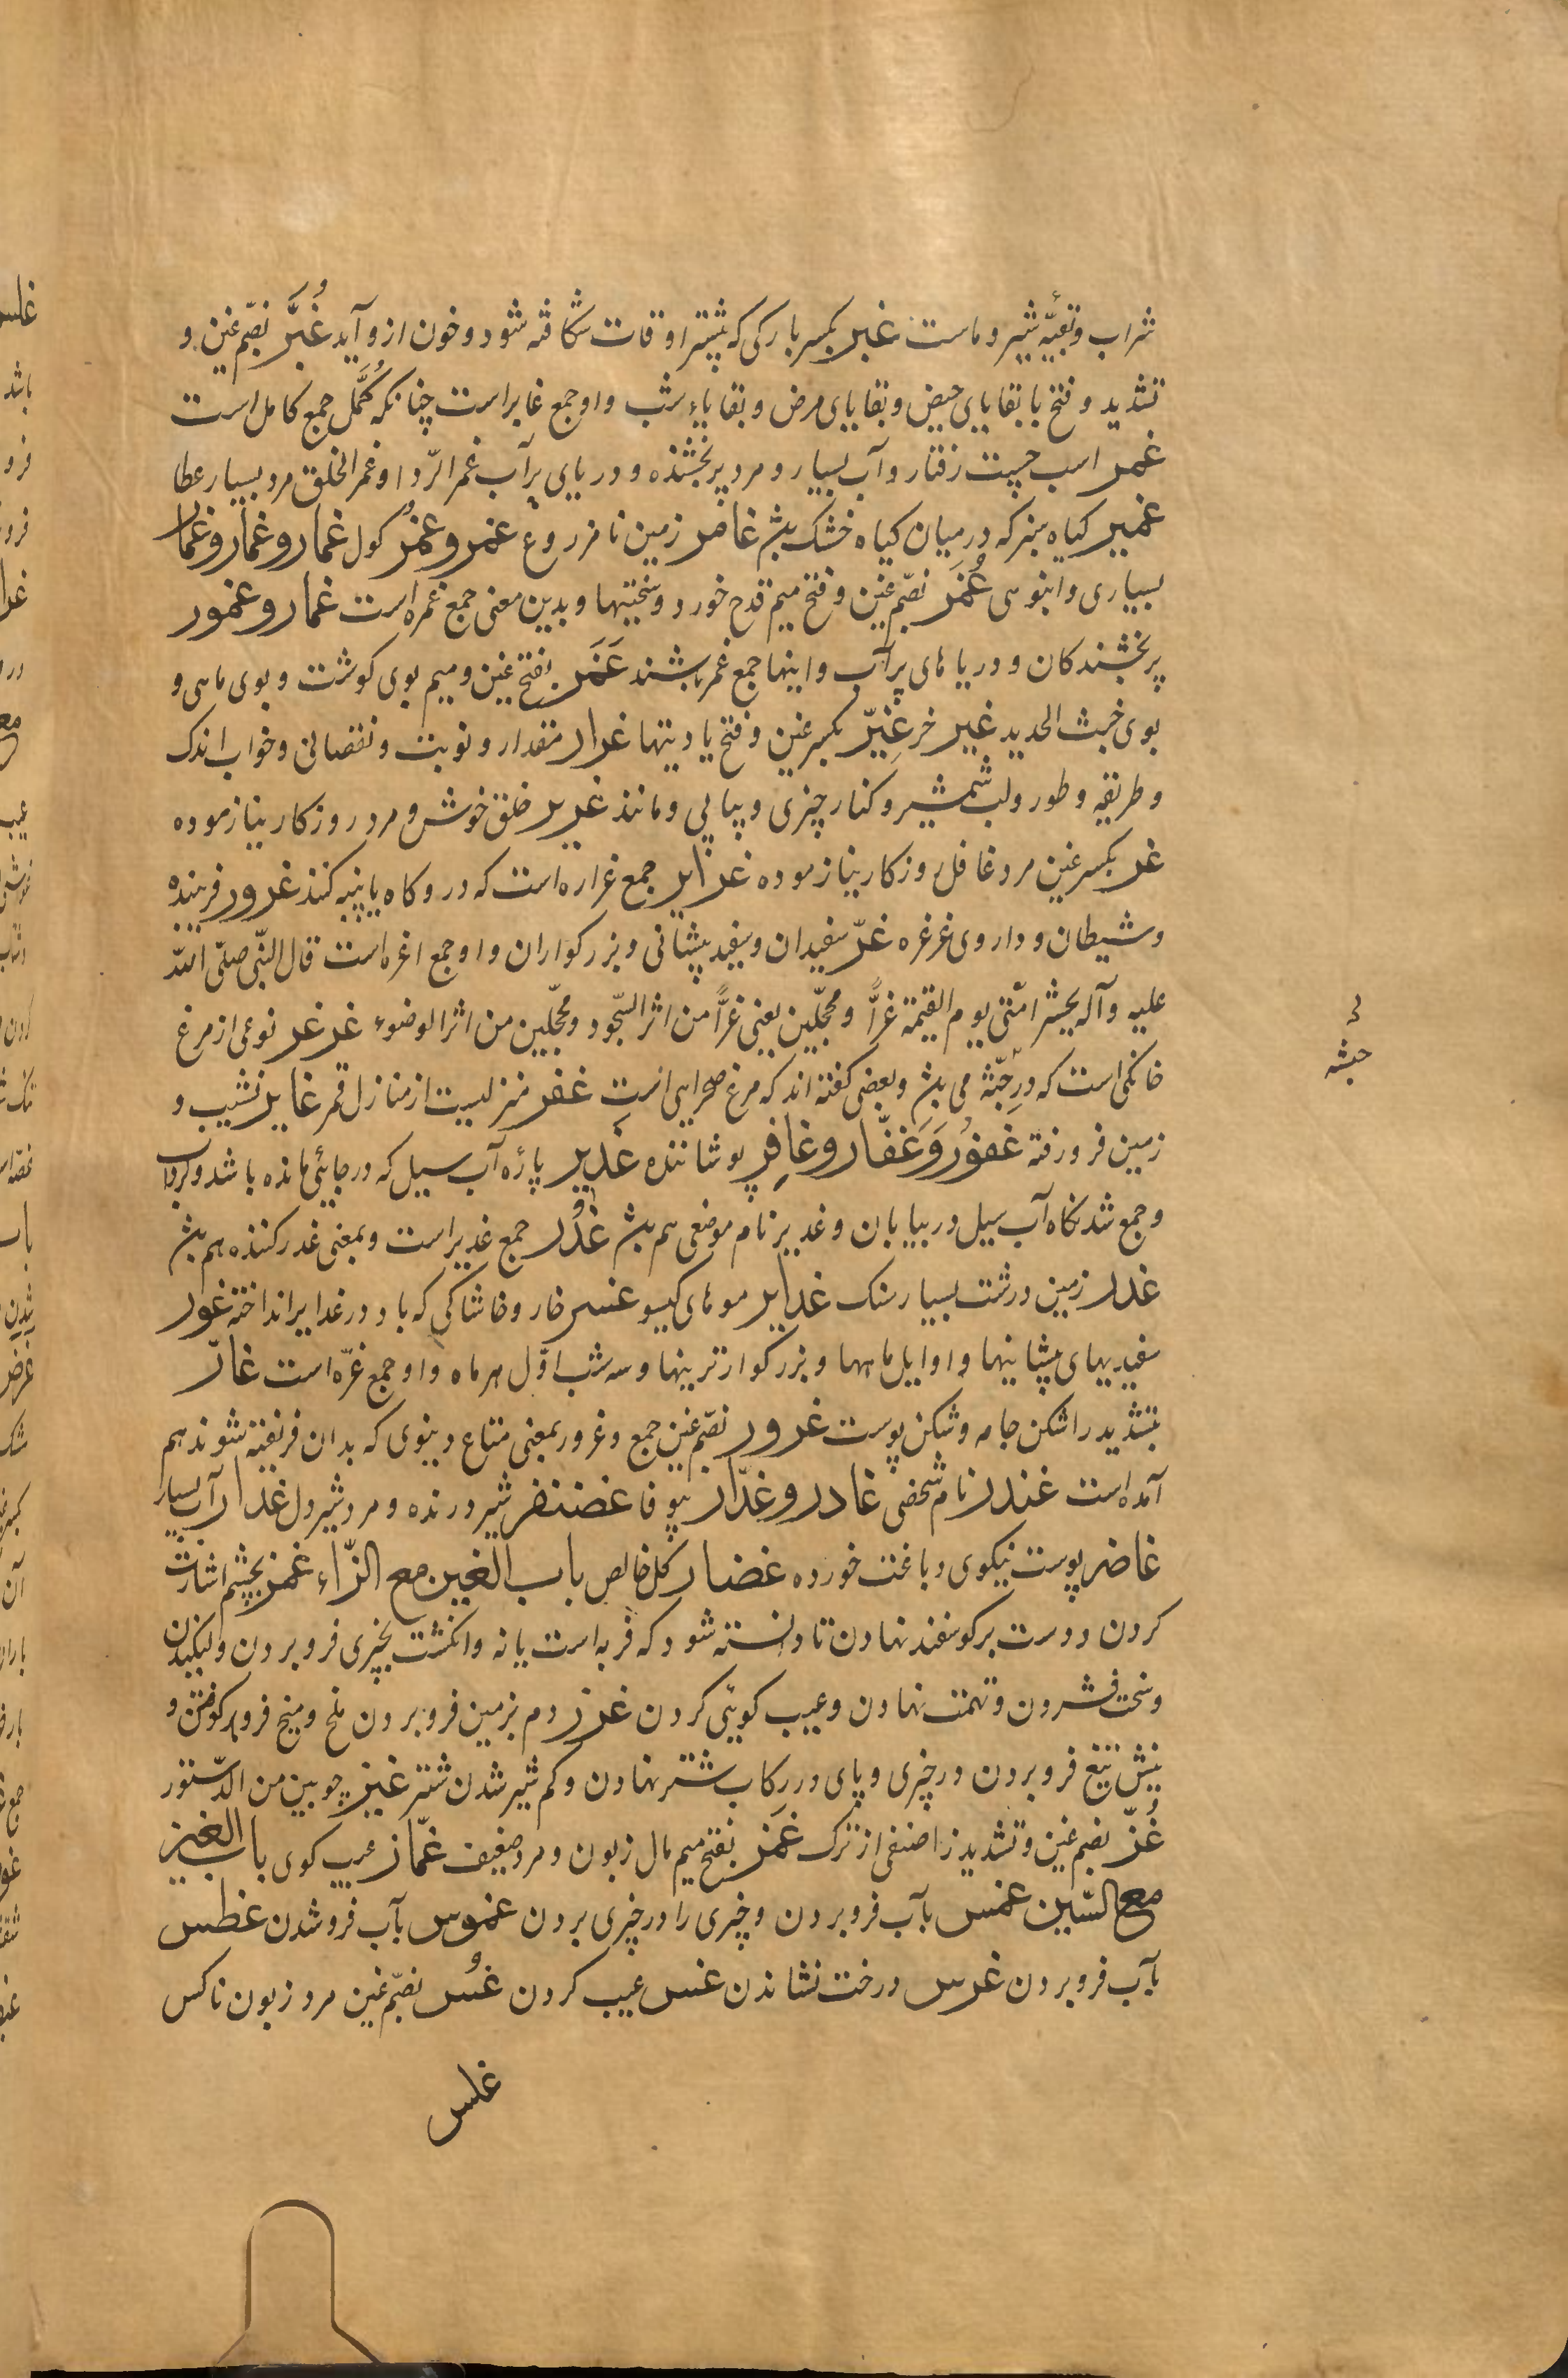 شراب و بقیّه شیر و ماست غبر بکسر با رکی که بیشتر اوقات شکافته شود و خون ازو آید غُبَّر بضمّ غین و
تشدید و فتح با بقایای حیض و بقایای مرض و بقایاء شب و او جمع غابر است چنانکه کُمَّل جمع کامل است
غمر اسب چست رفتار و آب بسیار و مرد پر بخشنده و دریای پر آب غمر الرّدا و غمر الخلق مرد بسیار عطا
غمیر کیاه سبز که در میان کیاه خشک باشد غامر زمین نامزروع غمر و غُمُر کول غمار و غمار و غمار
بسیاری و انبوهی غُمَر بضمّ غین و فتح میم قدح خورد و سختیها و بدین معنی جمع غمره است غمار و غمور
پر بخشندکان و دریاهای پر آب و اینها جمع غمر باشند غَمَر بفتح غین و میم بوی کوشت و بوی ماهی و
بوی خبث الحدید غیر خر غِیَر بکسر غین و فتح یا دیتها غرار مقدار و نوبت و نقصانی و خواب اندک
و طریقه و طور و لب شمشیر و کنار چیزی و پیاپی و مانند غریر خلق خوش و مرد روزکار نیازموده
غر بکسر غین مرد غافل روزکار نیازموده غرایر جمع غراره است که درو کاه یا پنبه کنند غرور فریبنده
و شیطان و داروی غرغره غرّ سفیدان و سفید پیشانی و بزرکواران و او جمع اغر است قال النّبی صلّی اللّه
علیه و آله یحشر امّتی یوم القیمة غرًّا و محجّلین یعنی غرًّا من اثر السّجود و محجّلین من اثر الوضوء غرغر نوعی از مرغ
خانکی است که در حبشه می باشد و بعضی کفته اند که مرغ صحرایی است غفر منزلیست از منازل قمر غایر نشیب و
زمین فرو رفته غفوُر وَ غَفّار و غافِر پوشاننده غدیر پاره آب سیل که در جائی مانده باشد و کرداب
و جمع شدنکاه آب سیل در بیابان و غدیر نام موضعی هم باشد غُدُر جمع غدیر است و بمعنی غدر کننده هم باشد
غدر زمین درشت بسیار سنک غدایر موهای کیسو غسر خار و خاشاکی که باد در غدایر انداخته غرر
سفیدیهای پیشانیها و اوایل ماهها و بزرکوارترینها و سه شب اوّل هر ماه و او جمع غرّه است غارّ
بتشدید را شکن جامه و شکن پوست غرور بضمّ غین جمع و غرور بمعنی متاع دنیوی که بدان فریفته شوند هم
آمده است غندر نام شخصی غادر و غدّار بیوفا غضنفر شیر درنده و مرد شیر دل غدار آب بسیار
غاضر پوست نیکوی دباغت خورده غضار کل خالص باب الغین مع الزّاء غمز بچشم اشارت
کردن و دست بر کوسفند نهادن تا دانسته شود که فربه است یا نه و انکشت بچیزی فرو بردن و لنکیدن
و سخت فشردن و تهمت نهادن و عیب کویئی کردن غرز دم بزمین فرو بردن ملخ و میخ فرو کوفتن و
نیش تیغ فرو بردن در چیزی و پای در رکاب شتر نهادن و کم شیر شدن شتر غیز چوبین من الدّستور
غُزّ بضم غین و تشدید زا صنفی از ترک غَمَز بفتح میم مال زبون و مرد ضعیف غمّاز عیب کوی باب الغین
مع السّین غمس بآب فرو بردن و چیزی را در چیزی بردن غموس بآب فرو شدن غطس
بآب فرو بردن غرس درخت نشاندن غس عیب کردن غُس بضمّ غین مرد زبون ناکس
غلس
حبشه